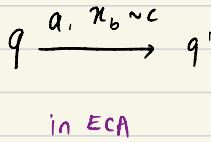 a, x_b ~ c
q ⟶ q'
in ECA